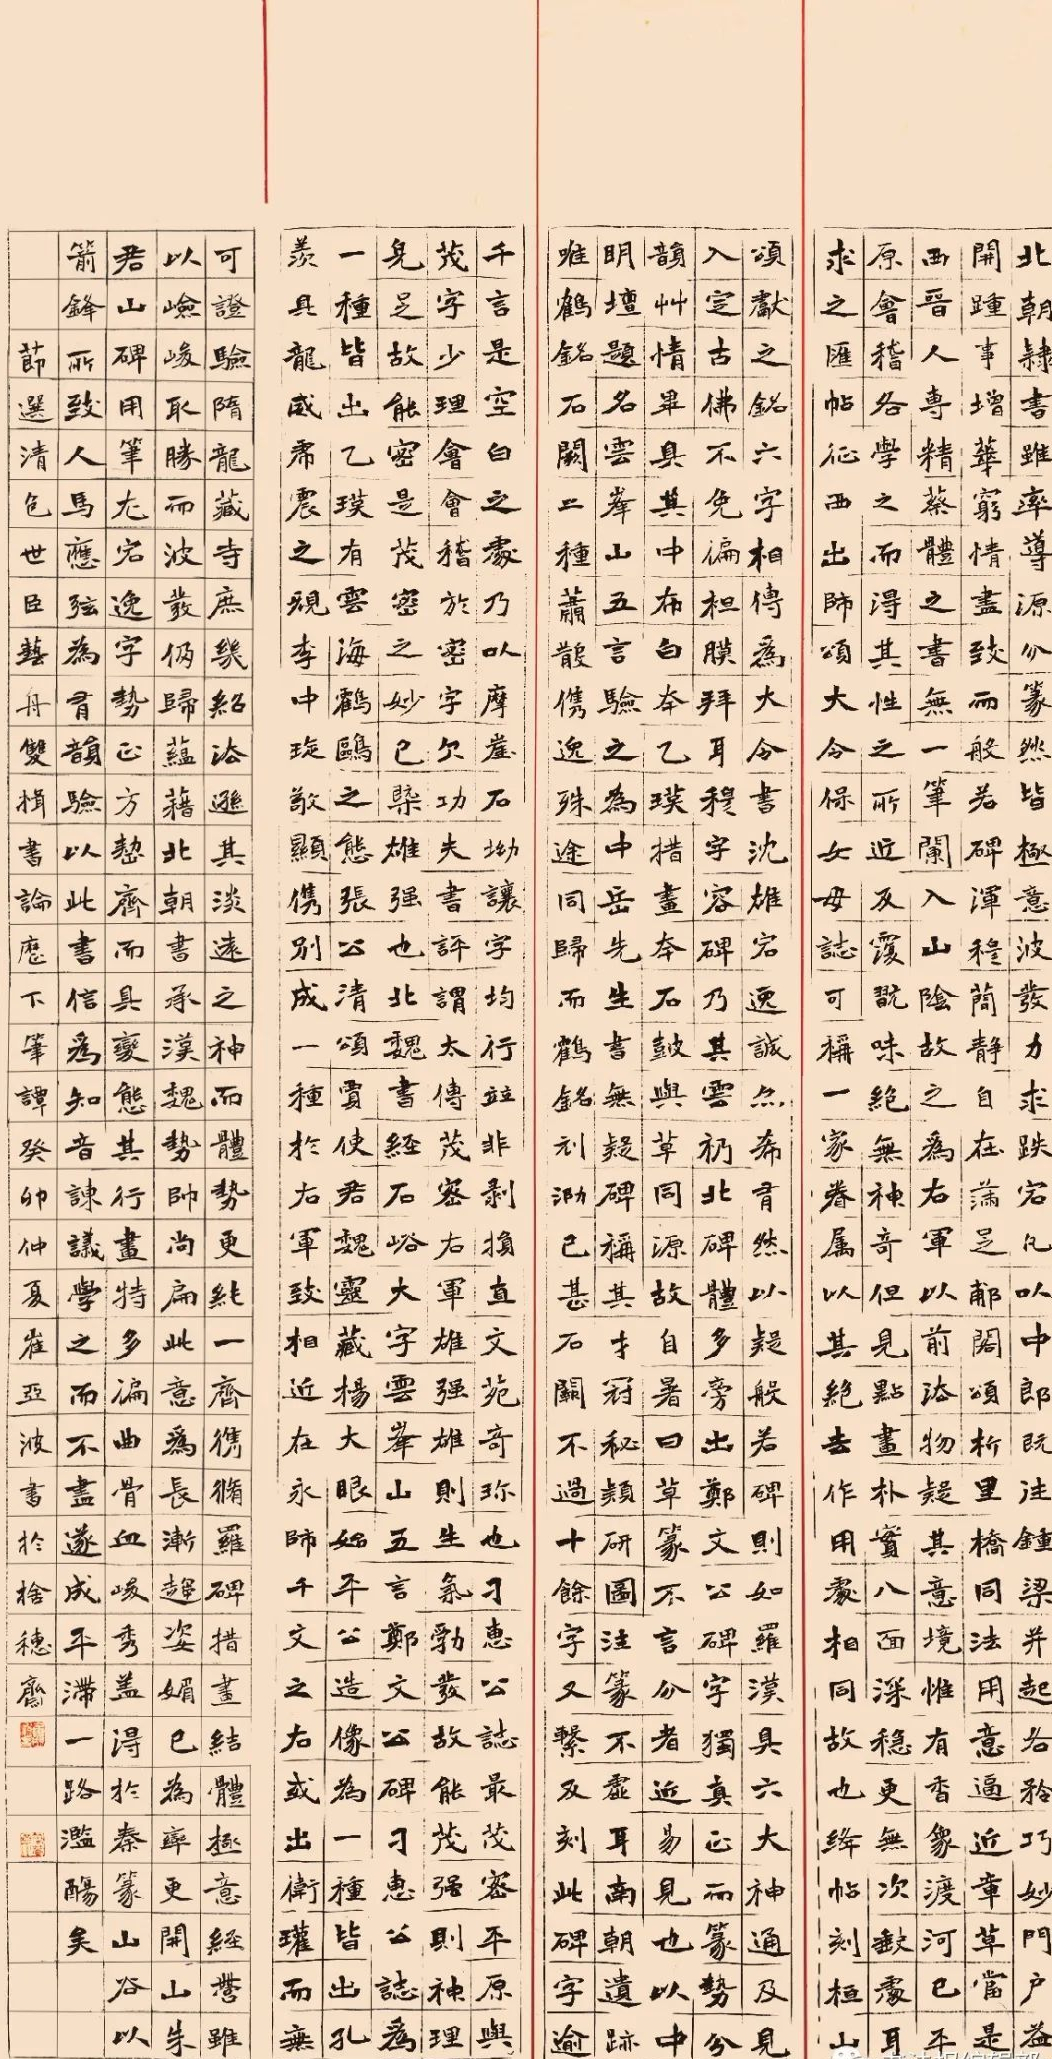 北朝隸書雖率導源分篆然皆極意波發力求跌宕凡以中郎既往鍾梁并起各矜巧妙門户益
開踵事增華窮情盡致而般若碑渾穆簡靜自在滿足郙閣頌析里橋同法用意逼近章草當是
西晉人專精蔡體之書無一筆闌入山陰故之為右軍以前法物疑其意境惟有香象渡河已平
原會稽各學之而淂其性之所近及覆翫味絕無神奇但見點畫朴實八面深稳更無次數處耳
求之匯帖征西出師頌大令保女母誌可稱一家眷属以其絕去作用處相同故也絳帖刻桓山
頌獻之銘六字相傳為大令書沈雄宕逸誠亦希有然以疑般若碑則如羅漢具六大神通及見
入定古佛不免偏袒膜拜耳穆字容碑乃其雲礽北碑體多旁出鄭文公碑字獨真正而篆勢分
韻艸情畢具其中布白本乙瑛措畫本石鼓與草同源故自署曰草篆不言分者近易見也以中
明壇題名雲峯山五言驗之為中岳先生書無疑碑稱其才冠秘頴研圖注篆不虛耳南朝遺跡
唯鶴銘石闕二種蕭散儁逸殊途同歸而鶴銘刓泐已甚石闕不過十餘字又繫及刻此碑字逾
千言是空白之處乃以摩崖石坳讓字均行竝非剥損直文苑奇珎也刁惠公誌最茂密平原與
茂字少理會會稽於密字欠功夫書評謂太傅茂密右軍雄强雄則生氣勃發故能茂强則神理
見足故能密是茂密之妙已槩雄强也北魏書經石峪大字雲峯山五言鄭文公碑刁惠公誌為
一種皆出乙瑛有雲海鶴鷗之態張公清頌賈使君魏靈藏楊大眼始平公造像為一種皆出孔
羡具龍威虎震之規李中琁敬顯儁別成一種於右軍致相近在永師千文之右或出衛瓘而無
可證驗隋龍藏寺庶幾紹法遜其淡遠之神而體勢更純一齊儁脩羅碑措畫結體極意經營雖
以嶮峻取勝而波發仍歸蘊藉北朝書承漢魏勢帥尚扁此意為長漸趨姿媚已為率更開山朱
君山碑用筆尤宕逸字勢正方整齊而具變態其行畫特多偏曲骨血峻秀盖淂於秦篆山谷以
箭鋒所致人馬應弦為有韻驗以此書信為知音諫議學之而不盡遂成平滯一路濫觴矣
節選清包世臣藝舟雙楫書論歷下筆譚癸卯仲夏崔亞波書於捨穗齋